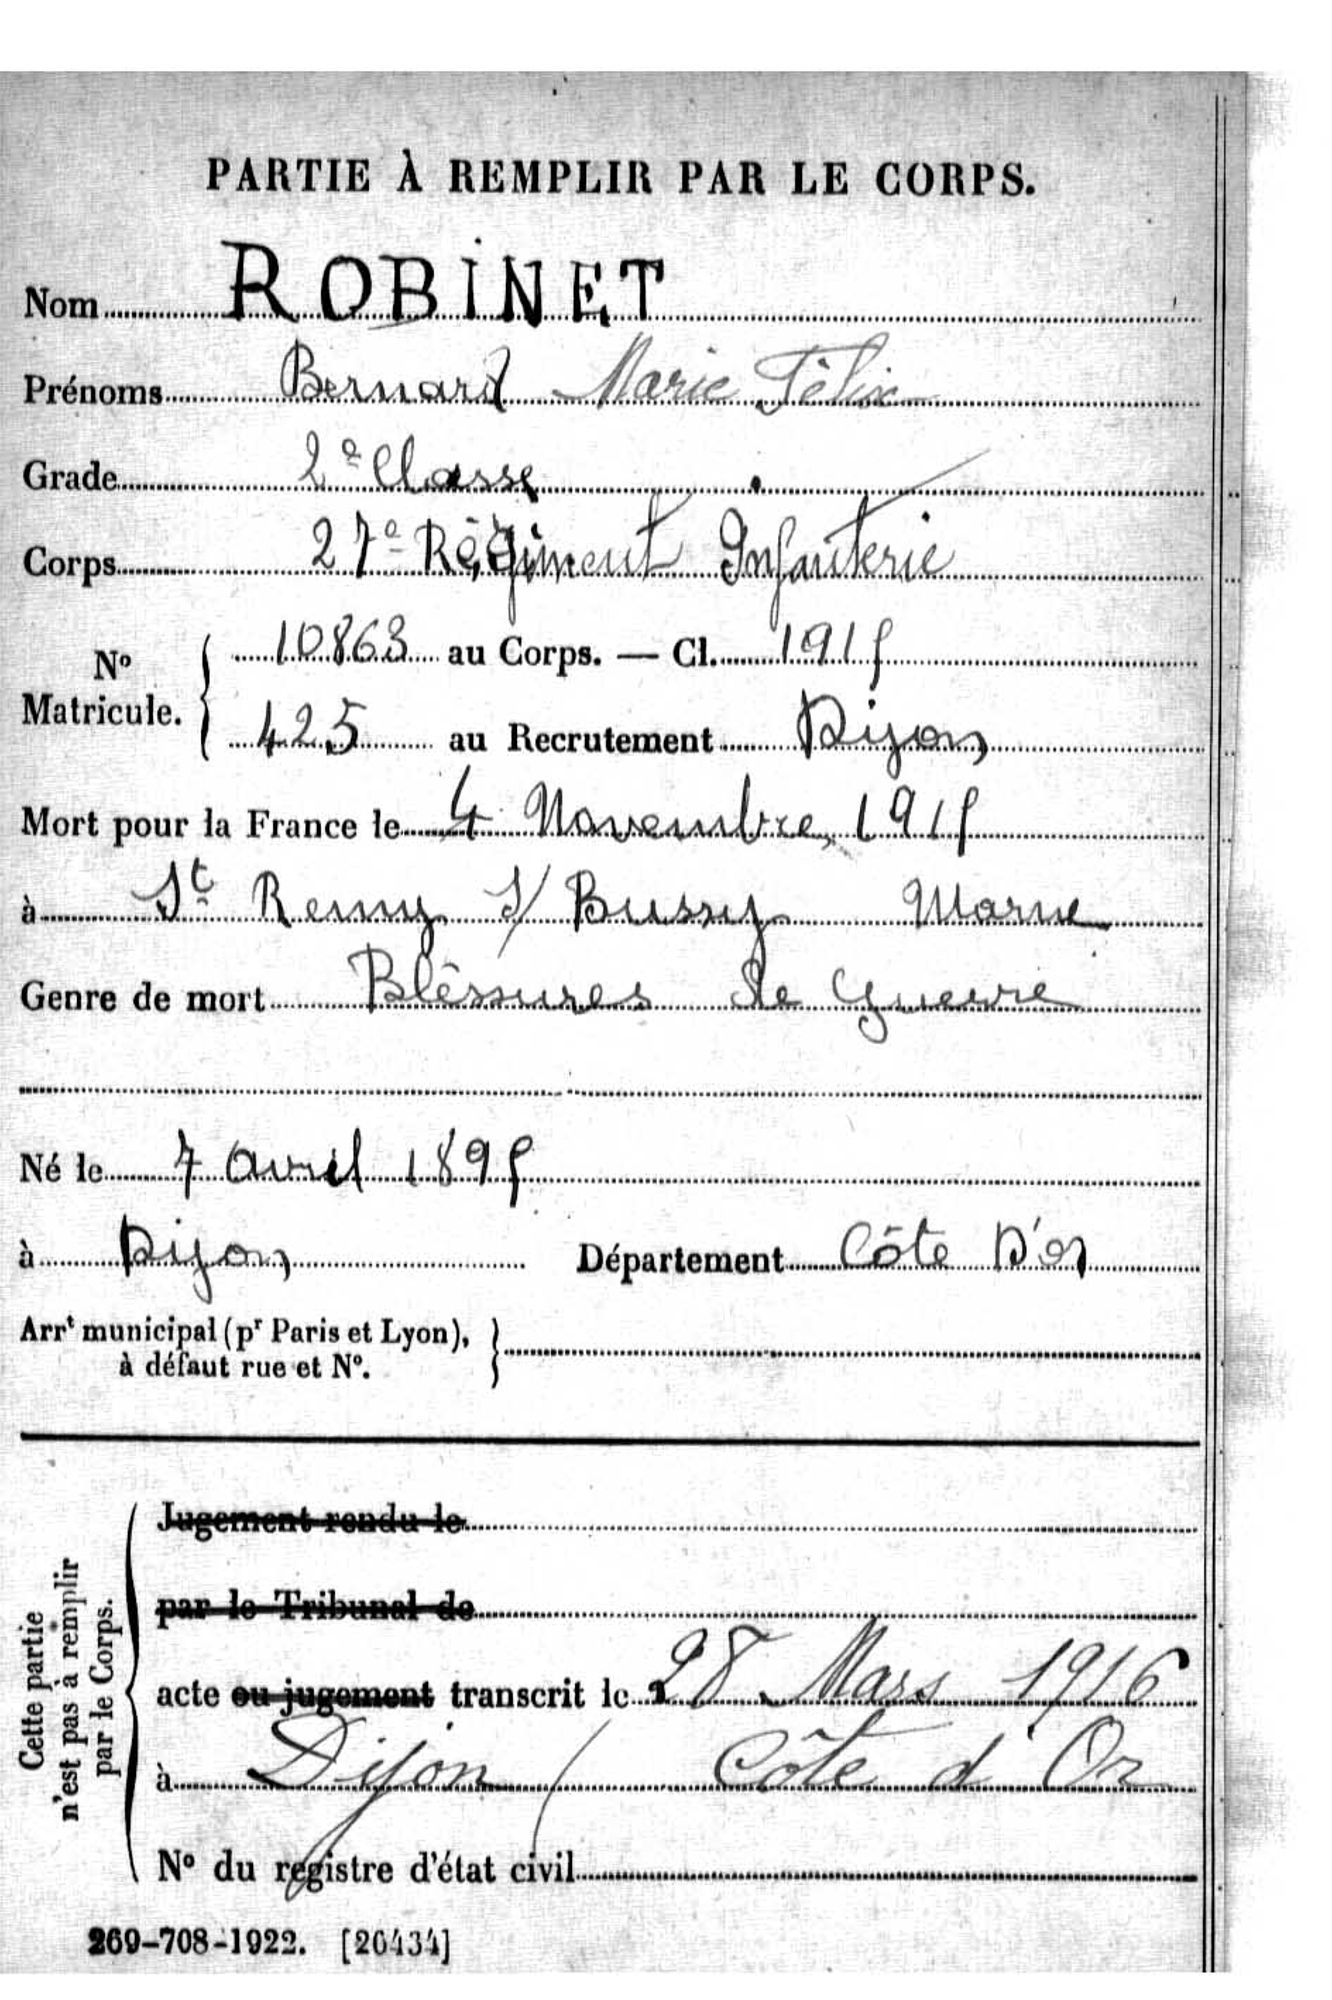 PARTIE À REMPLIR PAR LE CORPS.
Nom ROBINET
Prénoms Bernard Marie Félix
Grade 2e Classe
Corps 27e Régiment Infanterie
No Matricule. 10863 au Corps. — Cl. 1915
425 au Recrutement Dijon
Mort pour la France le 4 Novembre 1915
à St Remy s/ Bussy Marne
Genre de mort Blêssures de Guerre
Né le 7 avril 1895
à Dijon Département Côte D'or
Arrt municipal (pr Paris et Lyon),
à défaut rue et No.
Cette partie
n'est pas à remplir
par le Corps.
Jugement rendu le
par le Tribunal de
acte ou jugement transcrit le 28 Mars 1916
à Dijon ( Côte d'Or
No du registre d'état civil
269-708-1922. [26434]